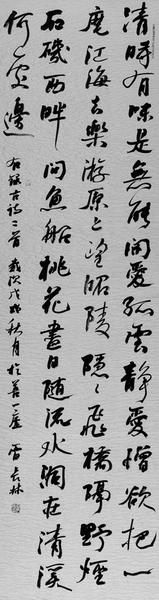 清時有味是無能閒愛孤雲靜愛僧欲把一
麾江海去樂游原上望昭陵隱々飛橋隔野煙
石磯西畔問魚船桃花盡日随流水洞在清溪
何處邊
右録古詩二首歲次戊戌秋月於一廬雷長林